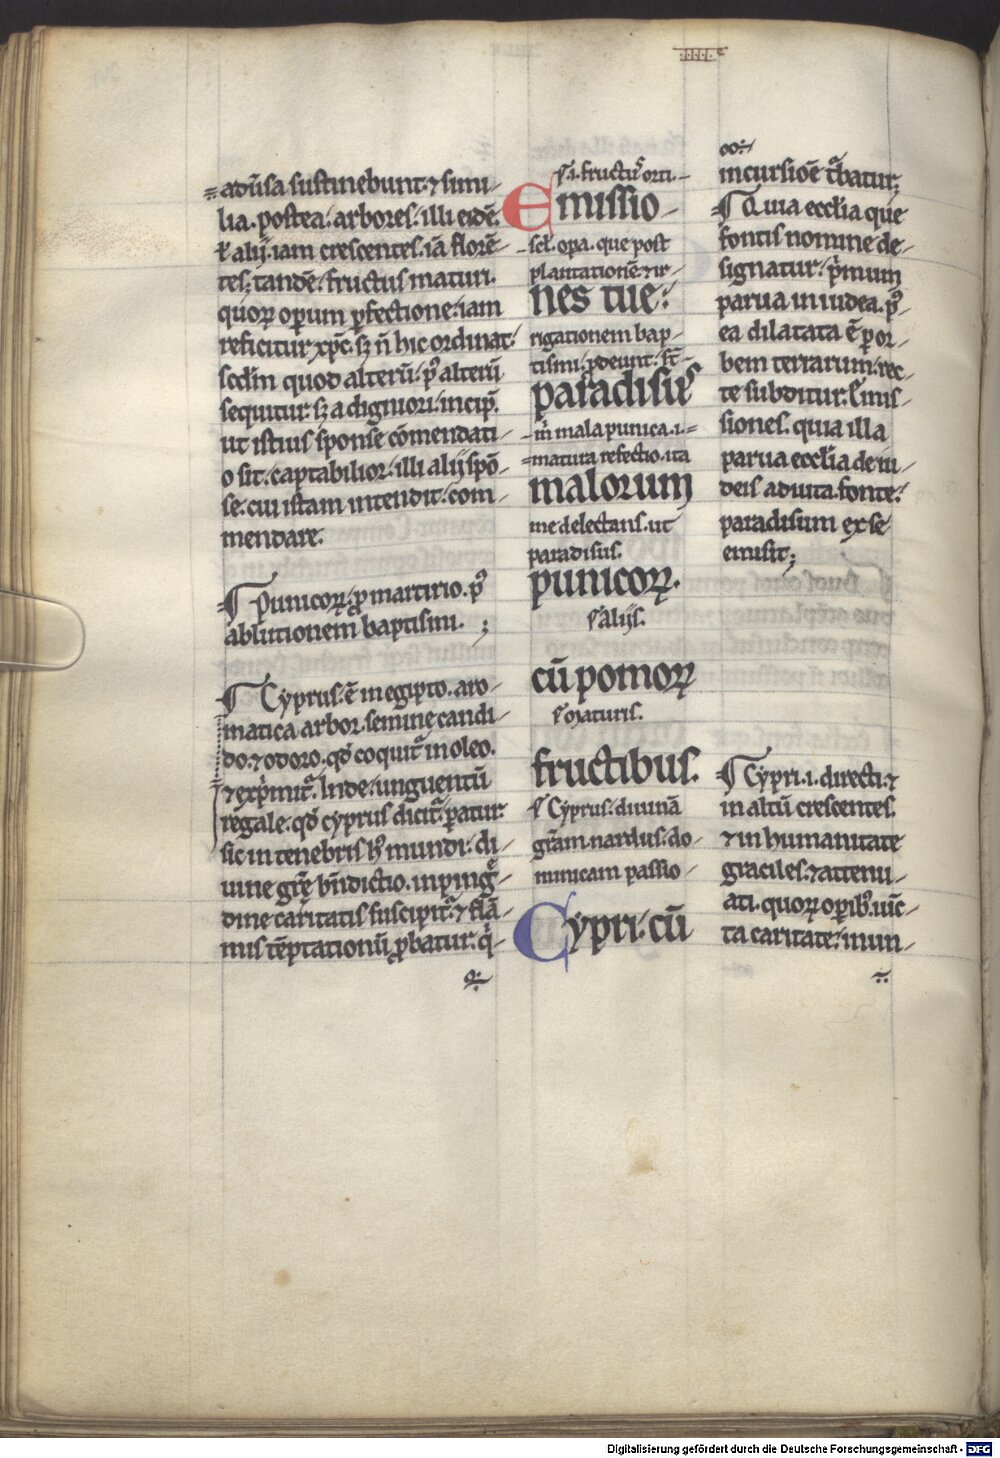 adūsa sustinebunt. ⁊ simi-
lia. postea. arbores. illi eidē.
ł alij. iam crescentes. iā florē-
tes; tandē. fructus maturi.
quoꝝ operum ꝑfectione. iam
reficitur xpc̄. sꝫ n̄ hic ordinat.
scdm̄ quod alterū. pꝰ alterū
sequitur. sꝫ a digniori. incip̄.
ut istius sponse cōmendati-
o sit. captabilior. illi alij spō-
se. cui istam intendit. com-
mendare.
¶ Punicoꝝ. ꝓ martirio. pꝰ
ablutionem baptismi. ;
¶ Cyprus. ē in egipto. aro-
matica arbor. semine candi-
do. ⁊ odoro. qđ coquit᷑ in oleo.
⁊ exp̄mit᷑. Inde. unguentū
regale. qđ cyprus dicit᷑. ꝑatur.
sic in tenebris hꝰ mundi. di-
uine gr̄e bn̄dictio. in pingᷓ-
dine caritatis suscipit᷑. ⁊ flā-
mis tēptationū ꝓbatur. qͥ-
.i. fructꝰ orti-
Emissio-
scł. oꝑa. que post
plantationē. ⁊ ir-
nes tue.
rigationem bap-
tismi. ꝓdeunt. st̄-
paradisꝰ
in̄ mala punica .i.
matura refectio. ita
malorum
me delectans. ut
paradisus.
punicoꝝ.
alijs.
cū pomoꝝ
maturis.
fructibus.
Cyprus. diuinā
gr̄am. nardus. do-
minicam passio-
Cypri. cū
incursiōe t᷑batur;
¶ Quia eccl̄ia que
fontis nomine de-
signatur. pͥmum
parua in iudea. pꝰ
ea dilatata ē ꝑ or-
bem terrarum. rec-
te subditur. Emis-
siones. quia illa
parua eccl̄ia de iu-
deis aduita. fonte.
paradisum ex se
emisit;
¶ Cypri .i. directi. ⁊
in altū crescentes.
⁊ in humanitate
graciles. ⁊ attenu-
ati. quoꝝ oꝑibꝰ. uic̄-
ta caritate. mun-
Digitalisierung gefördert durch die Deutsche Forschungsgemeinschaft - DFG